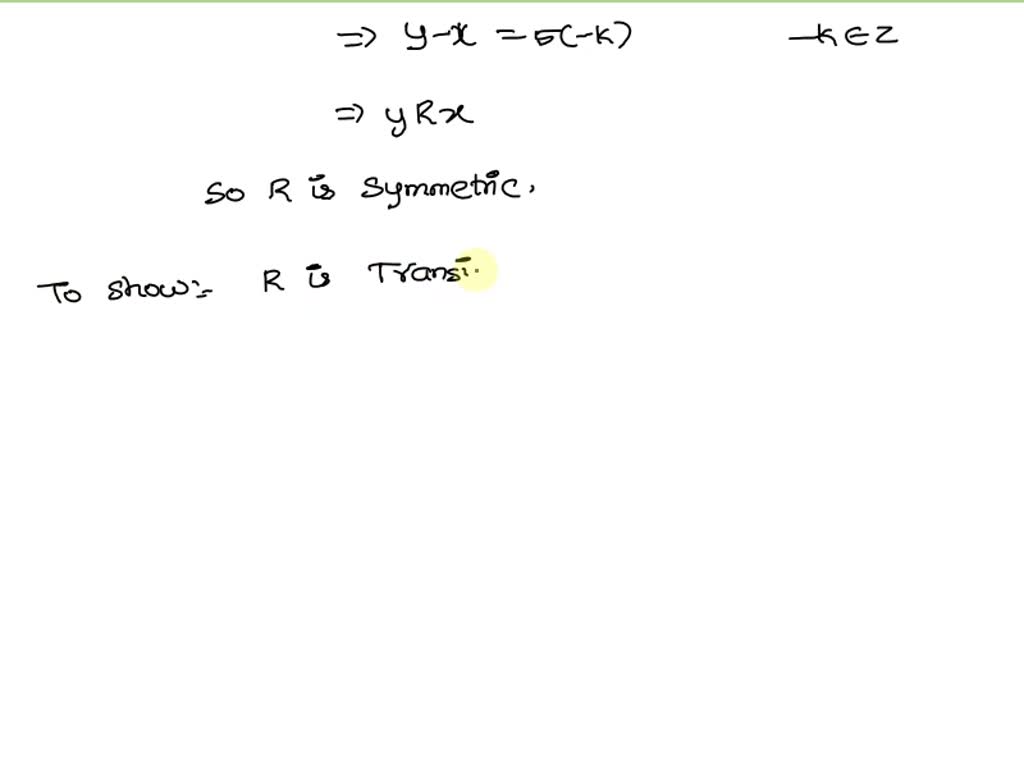 ⇒ y-x = 5(-k) -k ∈ Z
⇒ y R x
So R is symmetric.
To show:- R is Transi